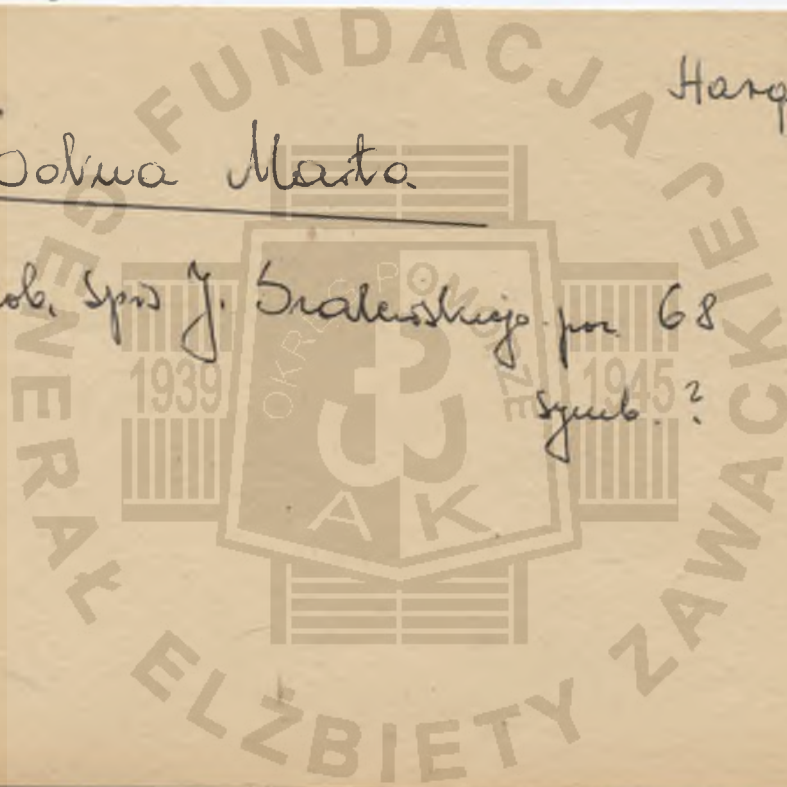 Harq
Marta
ob. Spis J. poz. 68
symb. ?
FUNDACJA
GENERAŁ ELŻBIETY ZAWACKIEJ
OKRĘG POMORZE
1939 1945
AK